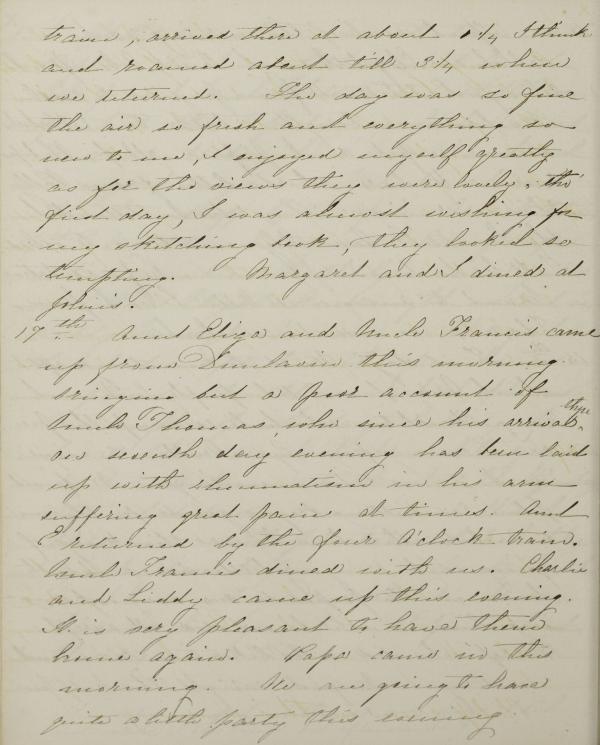 train, arrived there at about 1 1/4 I think
and roamed about till 3 1/4 when
we returned. The day was so fine
the air so fresh and everything so
new to me, I enjoyed myself greatly
as for the views they were lovely, tho'
first day, I was almost wishing for
my sketching book, they looked so
tempting. Margaret and I dined at
John's.
17th. Aunt Eliza and Uncle Francis came
up from Dunlavin this morning
bringing but a poor account of
Uncle Thomas, who since his arrival there
on seventh day evening has been laid
up with rheumatism in his arm
suffering great pain at times. Aunt
E returned by the four O'clock train.
Uncle Francis dined with us. Charlie
and Liddy came up this evening.
It is very pleasant to have them
home again. Papa came in this
morning. We are going to have
quite a little party this evening